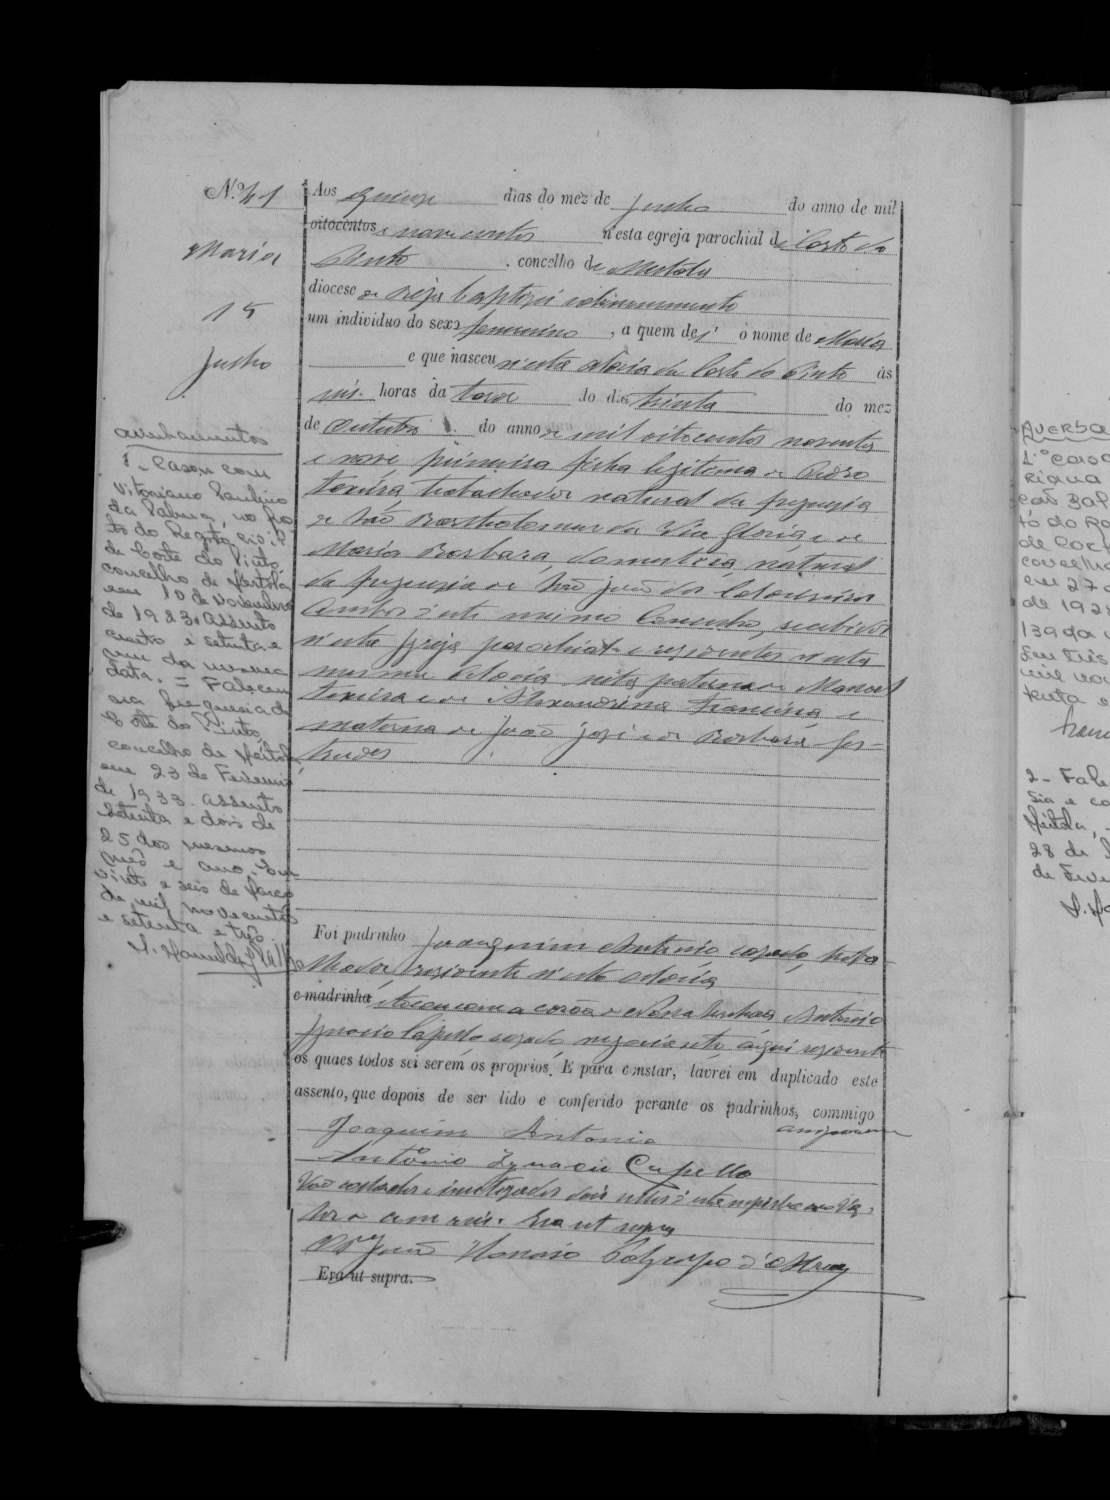 N.º 41
Maria
15
Junho
Aos quinze dias do mez de Junho do anno de mil
oitocentos e nove centos n'esta egreja parochial de Corte do
Pinto, concelho de Mertola
diocese de Beja baptizei solemnemente
um individuo do sexo femenino, a quem dei o nome de Maria
e que nasceu n'esta aldeia da Corte do Pinto ás
seis horas da tarde do dia trinta do mez
de Outubro do anno de mil oitocentos noventa
e nove primeira filha legitima de Pedro
Teixeira, trabalhador natural da freguezia
de São Bartholomeu da Via Gloria e de
Maria Barbara, domestica, natural
da freguezia de São João dos Caldeireiros
ambos d'este mesmo Concelho, recebidos
n'esta Igreja parochial e residentes n'esta
mesma aldeia, neta paterna de Manoel
Teixeira e de Alexandrina Francisca e
materna de João José e de Barbara Ger-
trudes
Foi padrinho Joaquim Antonio casado, traba-
lhador, residente n'esta aldeia
e madrinha tocou com a corôa de Nossa Senhora Antonio
Ignacio Capello casado negociante, aqui residente
os quaes todos sei serem os proprios. E para constar, lavrei em duplicado este
assento, que depois de ser lido e conferido perante os padrinhos, commigo
assignaram
Joaquim Antonio
Antonio Ignacio Capello
Vão collados e inutilizados dois sellos d'estampilha no va-
lor de cem reis. Era ut supra
João
Era ut supra.
averbamentos
1- Casou com
Vitoriano Paulino
da Palma, no Pos-
to do Registo Civil
de Corte do Pinto,
concelho de Mertola
em 10 de Novembro
de 1923. Assento
cento e setenta e
um da mesma
data. = Faleceu
na freguesia de
Corte do Pinto,
concelho de Mertola
em 23 de Fevereiro
de 1933. Assento
setenta e dois de
25 dos mesmos
mês e ano. Em
vinte e seis de Março
de mil novecentos
e setenta e três.
Averba
1.º casou
de 1928
139 da
2- Fale
28 de
de Feve